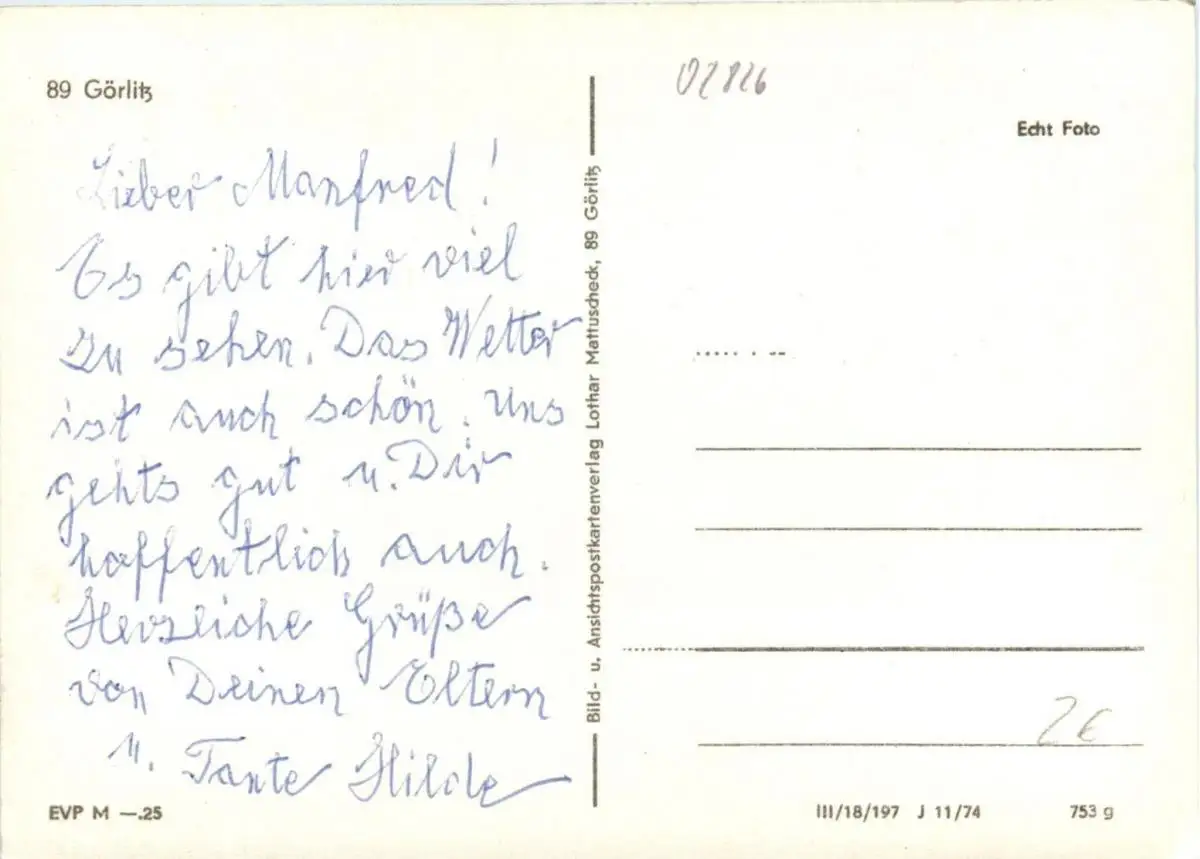 89 Görlitz
Lieber Manfred!
Es gibt hier viel
zu sehen. Das Wetter
ist auch schön. Uns
gehts gut u. Dir
hoffentlich auch.
Herzliche Grüße
von Deinen Eltern
u. Tante Hilde
EVP M —.25
Bild- u. Ansichtspostkartenverlag Lothar Mattuscheck, 89 Görlitz
02826
Echt Foto
2€
III/18/197 J 11/74 753 g